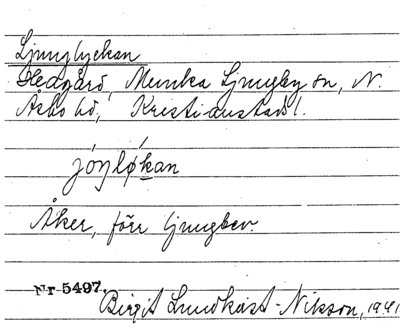 Ljunglyckan
Hedgård, Munka Ljungby sn, N.
Åsbo hd, Kristianstads l.
jóŋløkan
Åker, förr ljungbev.
Nr 5497.
Birgit Lundkvist-Nilsson, 1941